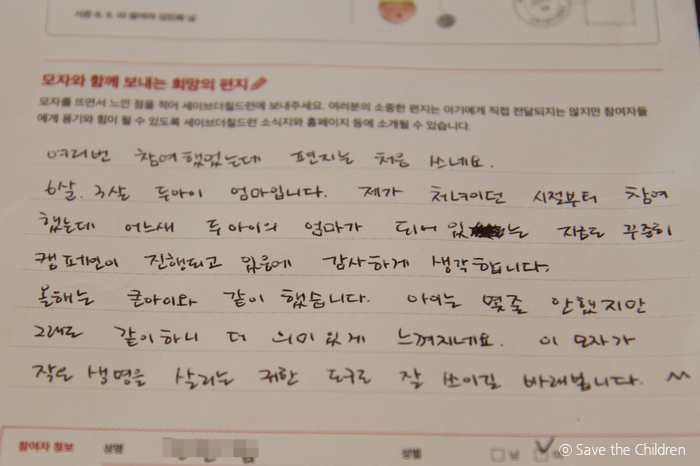 모자와 함께 보내는 희망의 편지
모자를 뜨면서 느낀 점을 적어 세이브더칠드런에 보내주세요. 여러분의 소중한 편지는 아기에게 직접 전달되지는 않지만 참여자들
에게 용기와 힘이 될 수 있도록 세이브더칠드런 소식지와 홈페이지 등에 소개될 수 있습니다.
여러번 참여했었는데 편지는 처음 쓰네요.
6살, 3살 두아이 엄마입니다. 제가 처녀이던 시절부터 참여
했는데 어느새 두아이의 엄마가 되어있는 지금도 꾸준히
캠페인이 진행되고 있음에 감사하게 생각합니다.
올해는 큰아이와 같이 했습니다. 아이는 몇줄 안했지만
그래도 같이하니 더 의미있게 느껴지네요. 이 모자가
작은 생명을 살리는 귀한 도구로 잘 쓰이길 바래봅니다. ^^
참여자 정보 성명 성별 남
© Save the Children